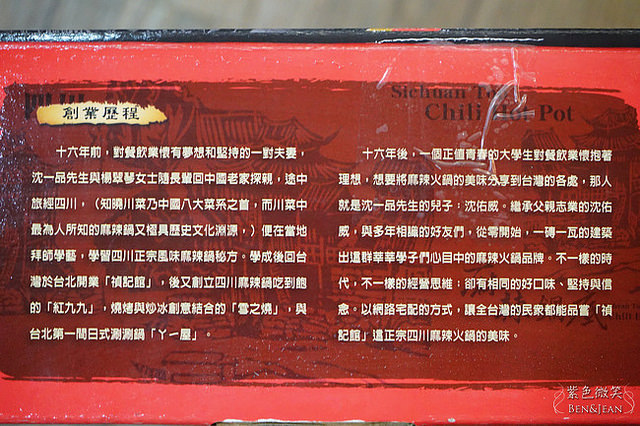 Sichuan T
Chili Hot Pot
創業歷程
十六年前，對餐飲業懷有夢想和堅持的一對夫妻，
沈一品先生與楊翠琴女士隨長輩回中國老家探親，途中
旅經四川，（知曉川菜乃中國八大菜系之首，而川菜中
最為人所知的麻辣鍋又極具歷史文化淵源，）便在當地
拜師學藝，學習四川正宗風味麻辣鍋秘方。學成後回台
灣於台北開業「禎記館」，後又創立四川麻辣鍋吃到飽
的「紅九九」，燒烤與炒冰創意結合的「雪之燒」，與
台北第一間日式涮涮鍋「ㄚ一屋」。
十六年後，一個正值青春的大學生對餐飲業懷抱著
理想，想要將麻辣火鍋的美味分享到台灣的各處，那人
就是沈一品先生的兒子：沈佑威。繼承父親志業的沈佑
威，與多年相識的好友們，從零開始，一磚一瓦的建築
出這群莘莘學子們心目中的麻辣火鍋品牌。不一樣的時
代，不一樣的經營思維；卻有相同的好口味、堅持與信
念。以網路宅配的方式，讓全台灣的民衆都能品嘗「禎
記館」這正宗四川麻辣火鍋的美味。
紫色微笑
BEN&JEAN